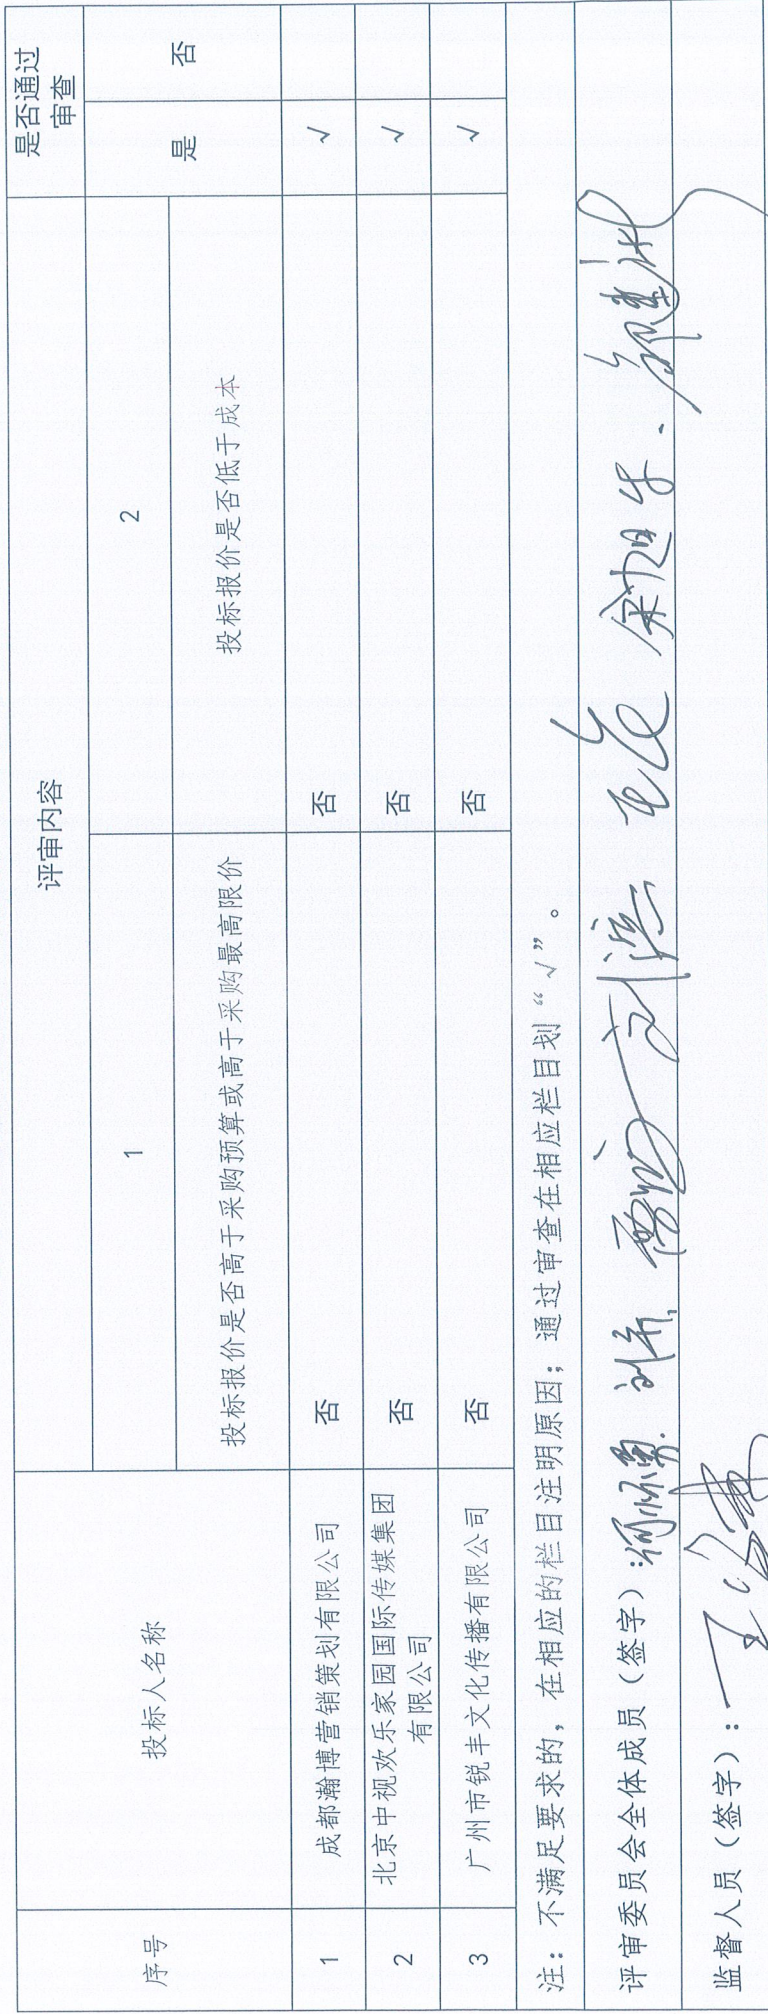 序号 投标人名称 评审内容 是否通过
审查
1 2 是 否
投标报价是否高于采购预算或高于采购最高限价 投标报价是否低于成本
1 成都瀚博营销策划有限公司 否 否 √
2 北京中视欢乐家园国际传媒集团
有限公司 否 否 √
3 广州市锐丰文化传播有限公司 否 否 √
注：不满足要求的，在相应的栏目注明原因；通过审查在相应栏目划“√”。
评审委员会全体成员（签字）:
监督人员（签字）: